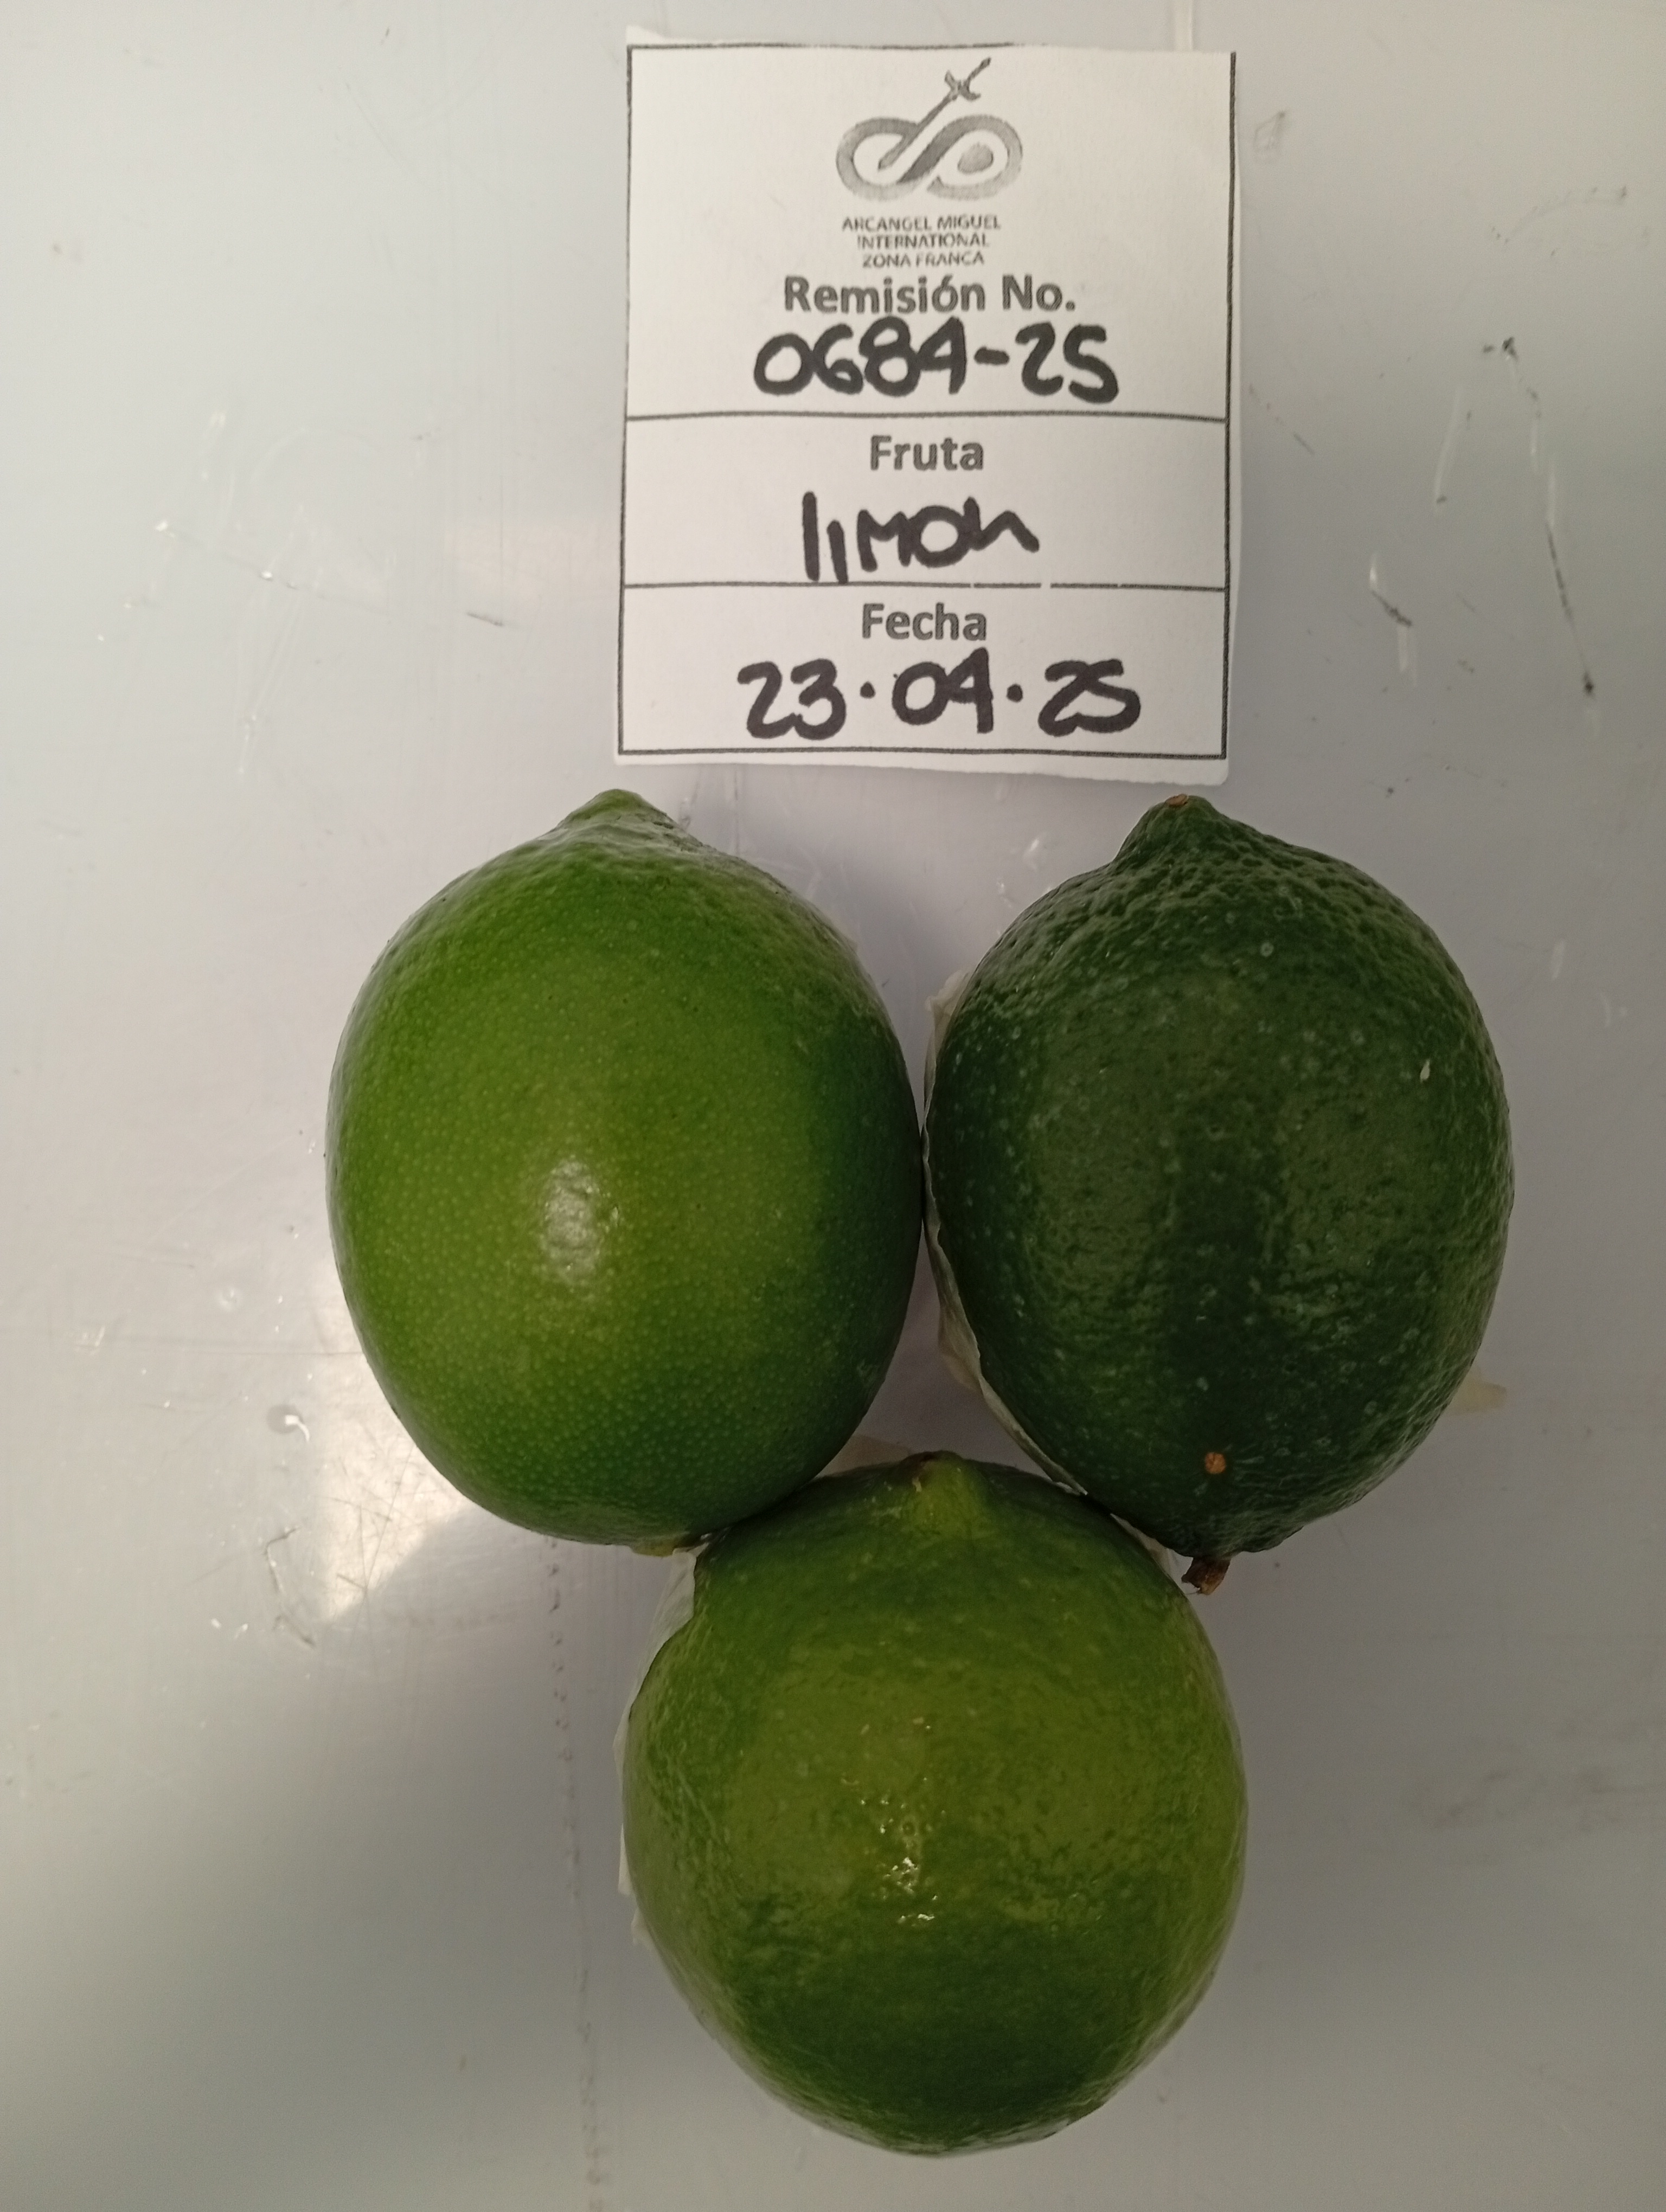 ARCANGEL MIGUEL
INTERNATIONAL
ZONA FRANCA
Remisión No.
0684-25
Fruta
limon
Fecha
23.04.25